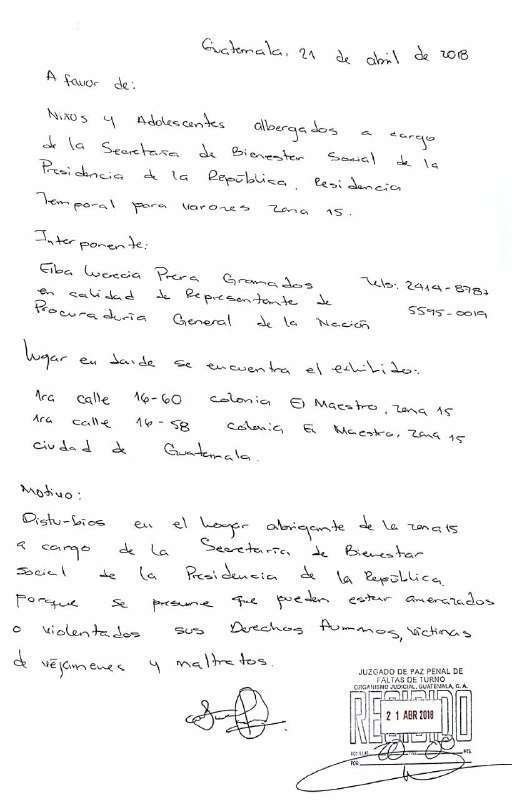 Guatemala, 21 de abril de 2018
A favor de:
Niños y Adolescentes albergados a cargo
de la Secretaria de Bienestar Social de la
Presidencia de la República. Residencia
Temporal para varones zona 15.
Interponente:
Elba Prera Gramados Tels: 2414-8787
en calidad de Representante de 5595-0019
Procuraduria General de la Nación
Lugar en donde se encuentra el exhibido:
1ra calle 16-60 colonia El Maestro, zona 15
1ra calle 16-58 colonia El Maestro, zona 15
ciudad de Guatemala.
Motivo:
Disturbios en el hogar abrigante de la zona 15
a cargo de la Secretaría de Bienestar
Social de la Presidencia de la República.
porque se presume que pueden estar amenazados
o violentados sus Derechos Humanos, victimas
de véjamenes y maltratos.
JUZGADO DE PAZ PENAL DE
FALTAS DE TURNO
ORGANISMO JUDICIAL, GUATEMALA, C. A.
RECIBIDO
21 ABR 2018
HRS.
POR